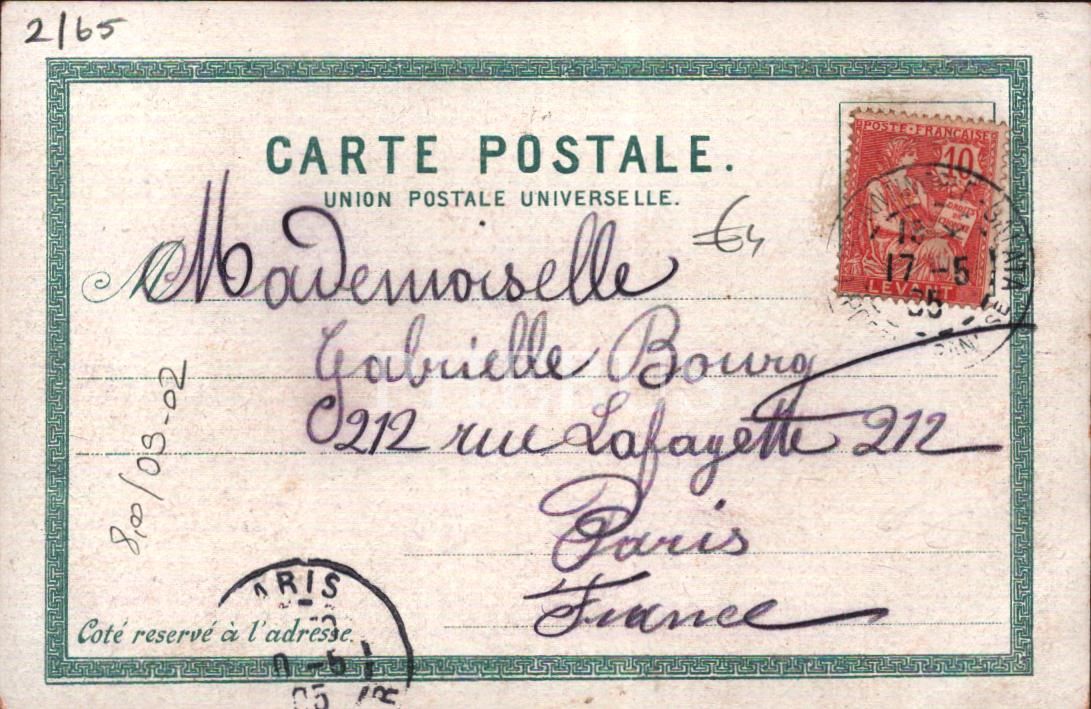 2/65
CARTE POSTALE.
UNION POSTALE UNIVERSELLE.
POSTE FRANÇAISE
10
17 -5
05
LEVANT
€4
Mademoiselle
Gabrielle Bourg
212 rue Lafayette 212
Paris
France
8,00/03-02
Coté reservé à l'adresse.
ARIS
-5
05